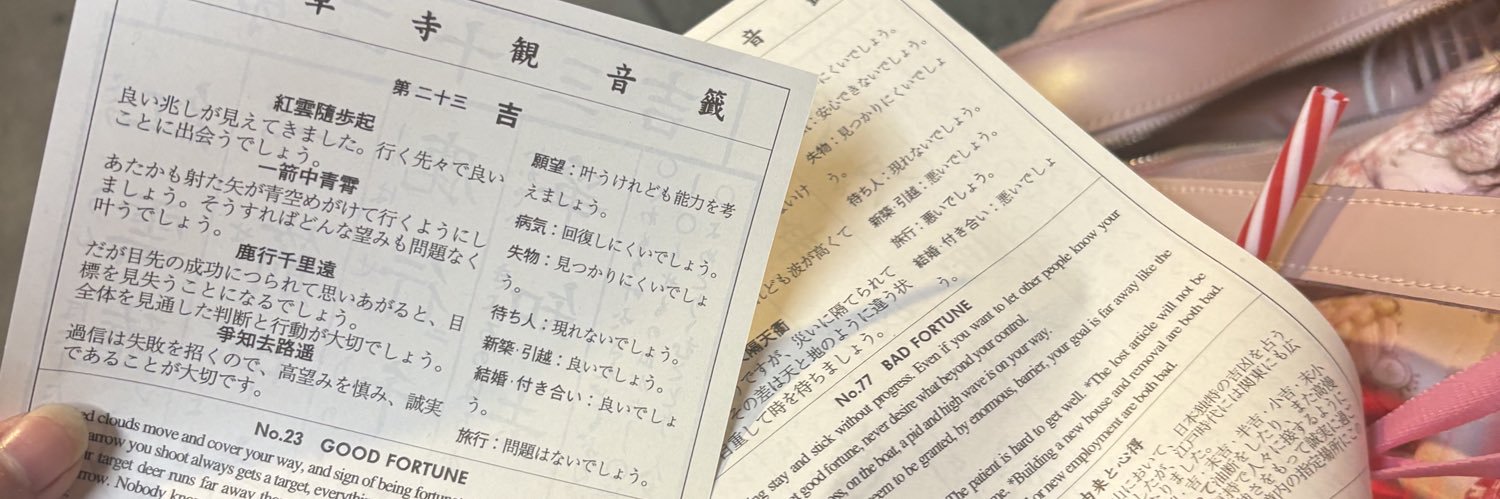 草寺観音籤
第二十三 吉
紅雲隨歩起
良い兆しが見えてきました。行く先々で良い
ことに出会うでしょう。
一箭中青霄
あたかも射た矢が青空めがけて行くようにし
ましょう。そうすればどんな望みも問題なく
叶うでしょう。
鹿行千里遠
だが目先の成功につられて思いあがると、目
標を見失うことになるでしょう。
全体を見通した判断と行動が大切でしょう。
爭知去路遥
過信は失敗を招くので、高望みを慎み、誠実
であることが大切です。
願望:叶うけれども能力を考
えましょう。
病気:回復しにくいでしょう。
失物:見つかりにくいでしょ
う。
待ち人:現れないでしょう。
新築・引越:良いでしょう。
結婚・付き合い:良いでしょ
う。
旅行:問題はないでしょう。
No.23 GOOD FORTUNE
clouds move and cover your way, and sign of being
arrow you shoot always gets a target,
target deer runs far away
Nobody
音
にくいでしょう。
安心できないでしょう。
失物:見つかりにくいでしょ
う。
待ち人:現れないでしょう。
新築・引越:悪いでしょう。
旅行:悪いでしょう。
結婚・付き合い:悪いでしょ
う。
ども波が高くて
隔天衢
ですが、災いに隔てられて
その差は天と地のように違う状
重して時を待ちましょう。
No.77 BAD FORTUNE
stay and stick without progress. Even if you want to let other people know your
good fortune, never desire what beyond your control.
on the boat, a pid and high wave is on your way.
seem to be granted, by enormous, harrier, your goal is far away like the
The patient is hard to get well. *The lost article will not be
*Building a new house and removal are both bad.
or new employment are both bad.
由来と心得
日本独特の吉凶を占う
江戸時代には関東にも広